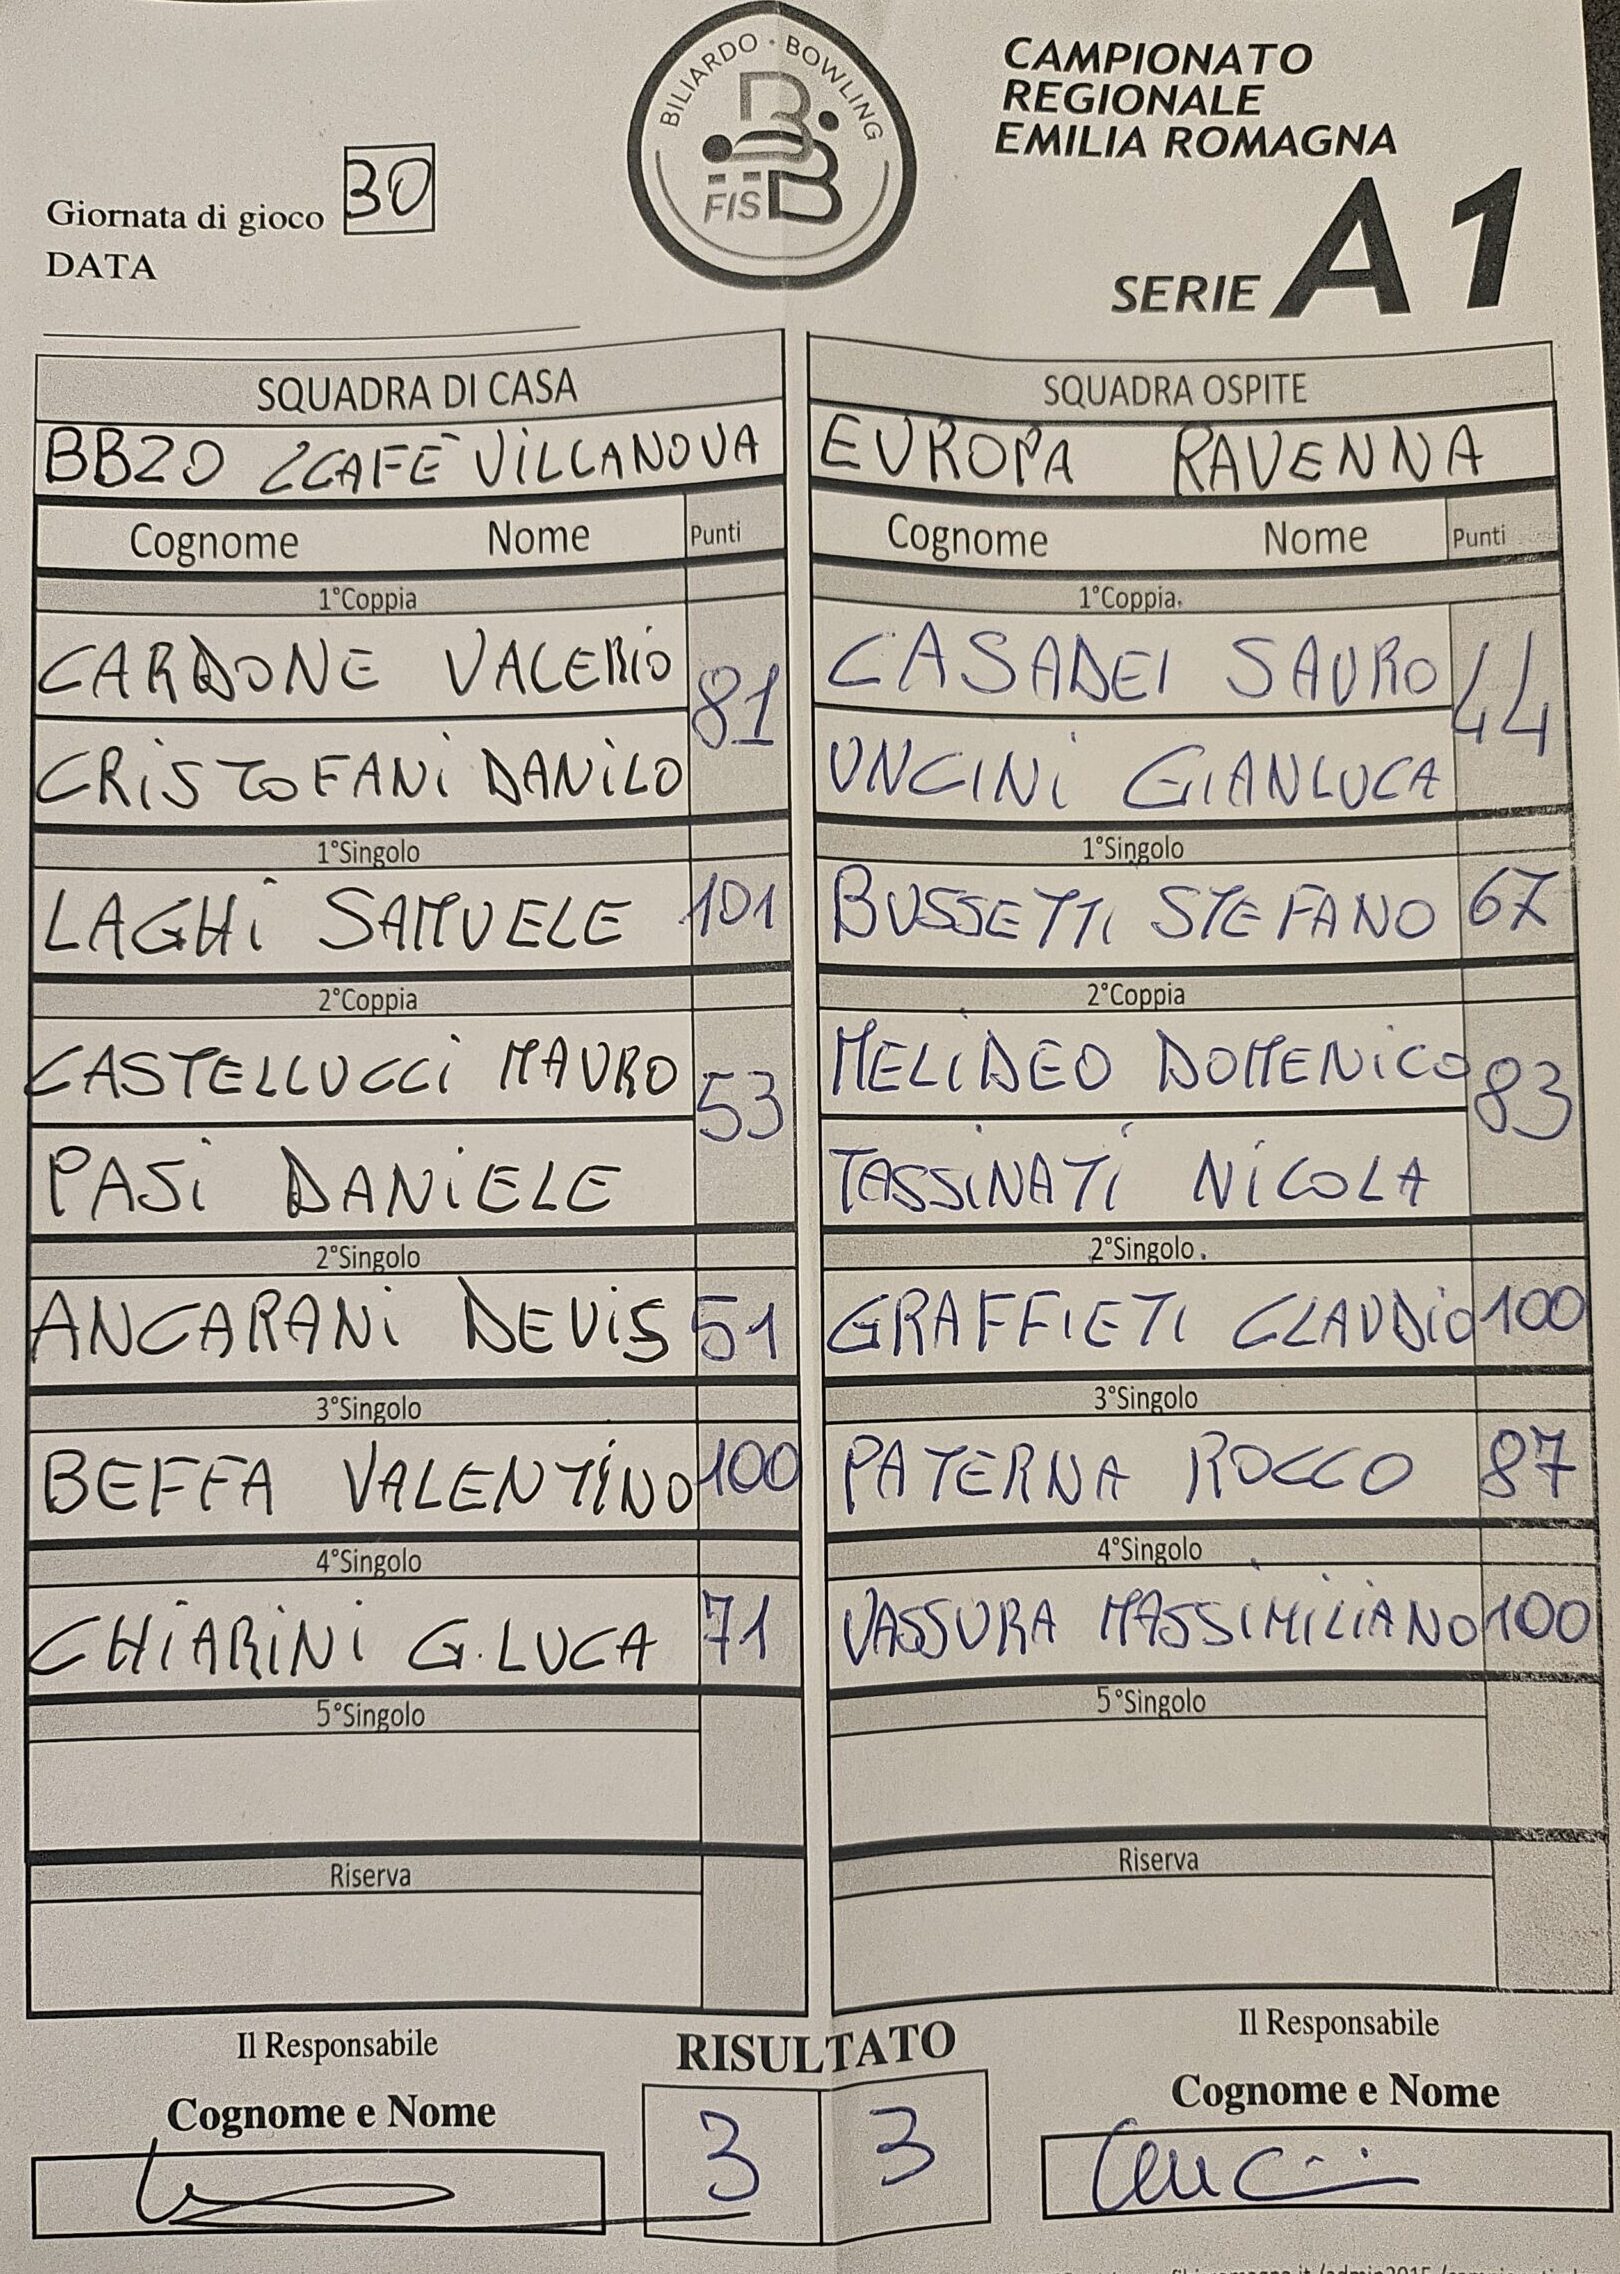 BILIARDO · BOWLING
FIS BB
CAMPIONATO
REGIONALE
EMILIA ROMAGNA
SERIE A1
Giornata di gioco 30
DATA
SQUADRA DI CASA SQUADRA OSPITE
BB20 2CAFÈ VILLANOVA EUROPA RAVENNA
Cognome Nome Punti Cognome Nome Punti
1°Coppia 1°Coppia.
CARDONE VALERIO 81 CASADEI SAURO 44
CRISTOFANI DANILO UNCINI GIANLUCA
1°Singolo 1°Singolo
LAGHI SAMUELE 101 BUSSETTI STEFANO 67
2°Coppia 2°Coppia
CASTELLUCCI MAURO 53 MELIDEO DOMENICO 83
PASI DANIELE TASSINATI NICOLA
2°Singolo 2°Singolo.
ANCARANI DEVIS 51 GRAFFIETI CLAUDIO 100
3°Singolo 3°Singolo
BEFFA VALENTINO 100 PATERNA ROCCO 87
4°Singolo 4°Singolo
CHIARINI G.LUCA 71 VASSURA MASSIMILIANO 100
5°Singolo 5°Singolo
Riserva Riserva
Il Responsabile RISULTATO Il Responsabile
Cognome e Nome 3 3 Cognome e Nome